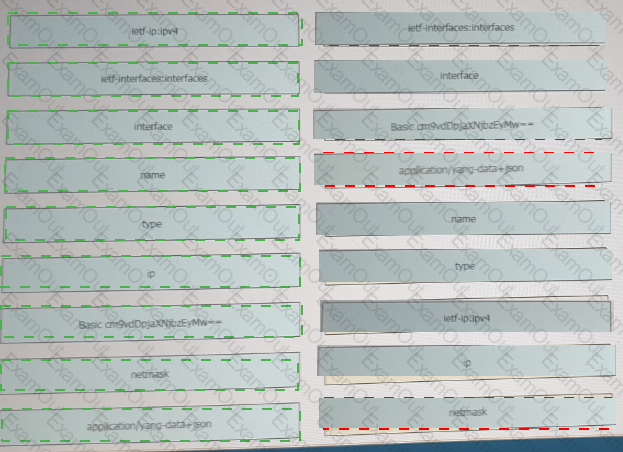 ietf-ip:ipv4
ietf-interfaces:interfaces
interface
name
type
ip
Basic cm9vdDpjaXNjbzEyMw==
netmask
application/yang-data+json
ietf-interfaces:interfaces
interface
Basic cm9vdDpjaXNjbzEyMw==
application/yang-data+json
name
type
ietf-ip:ipv4
ip
netmask